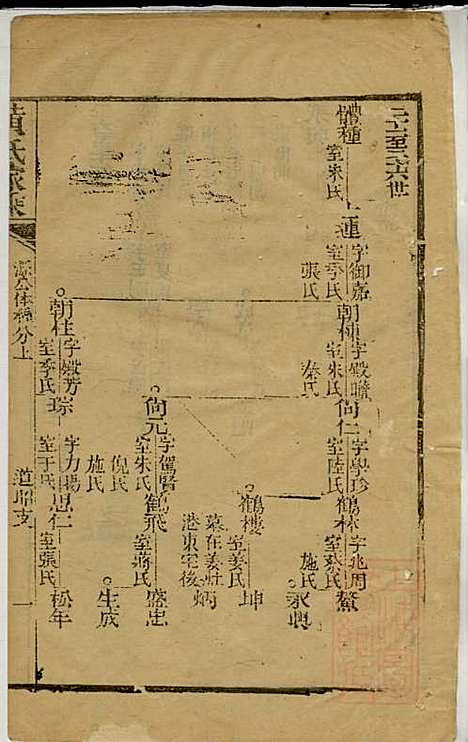 體種
室朱氏
上蓮
字御嘉
室季氏
張氏
朝棟
字殿瞻
室朱氏
秦氏
尙仁
字學珍
室陸氏
鶴林
字兆周
室蔡氏
施氏
鰲
永興
鶴樓
室姜氏
坤
墓在姜灶
港東宅後
炳
尙元
字駕賢
室朱氏
倪氏
施氏
鶴飛
室蔣氏
盛忠
生成
朝佐
字殿芳
室季氏
琮
字力揚
室于氏
思仁
室張氏
松年
黃氏家乘
源公体種分上
道昭支
一